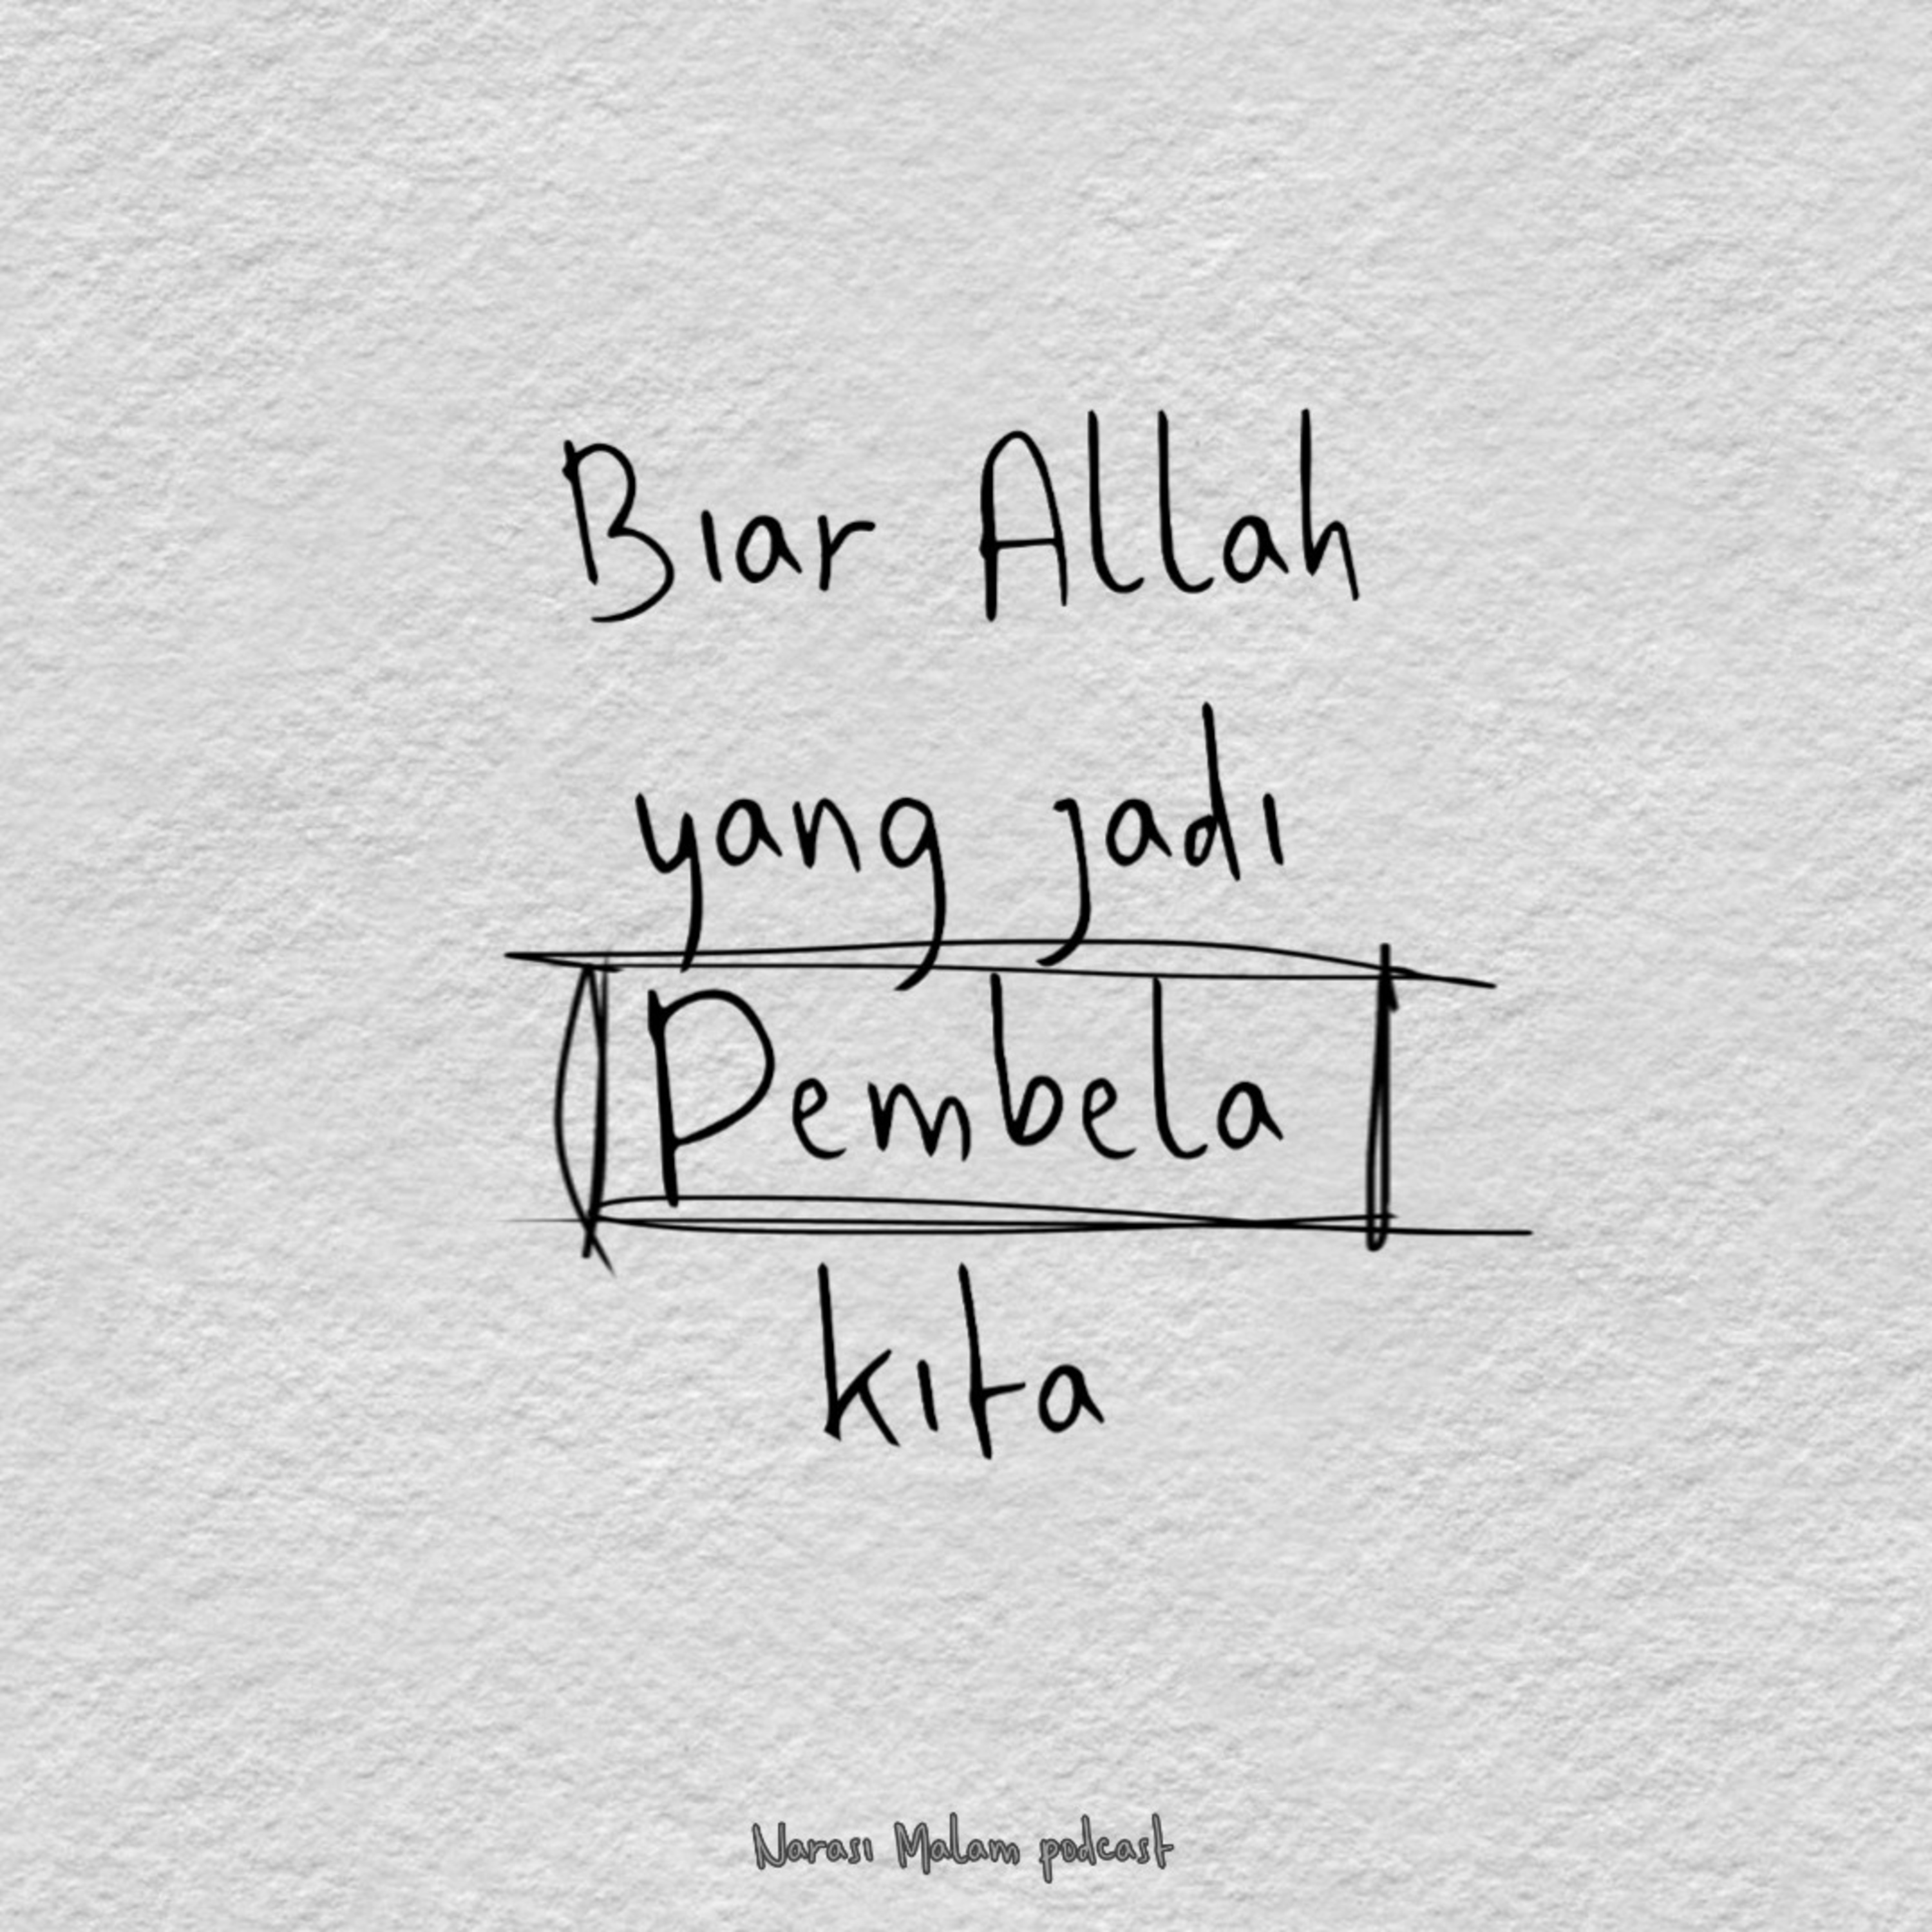 Biar Allah
yang jadi
Pembela
kita
Narasi Malam podcast